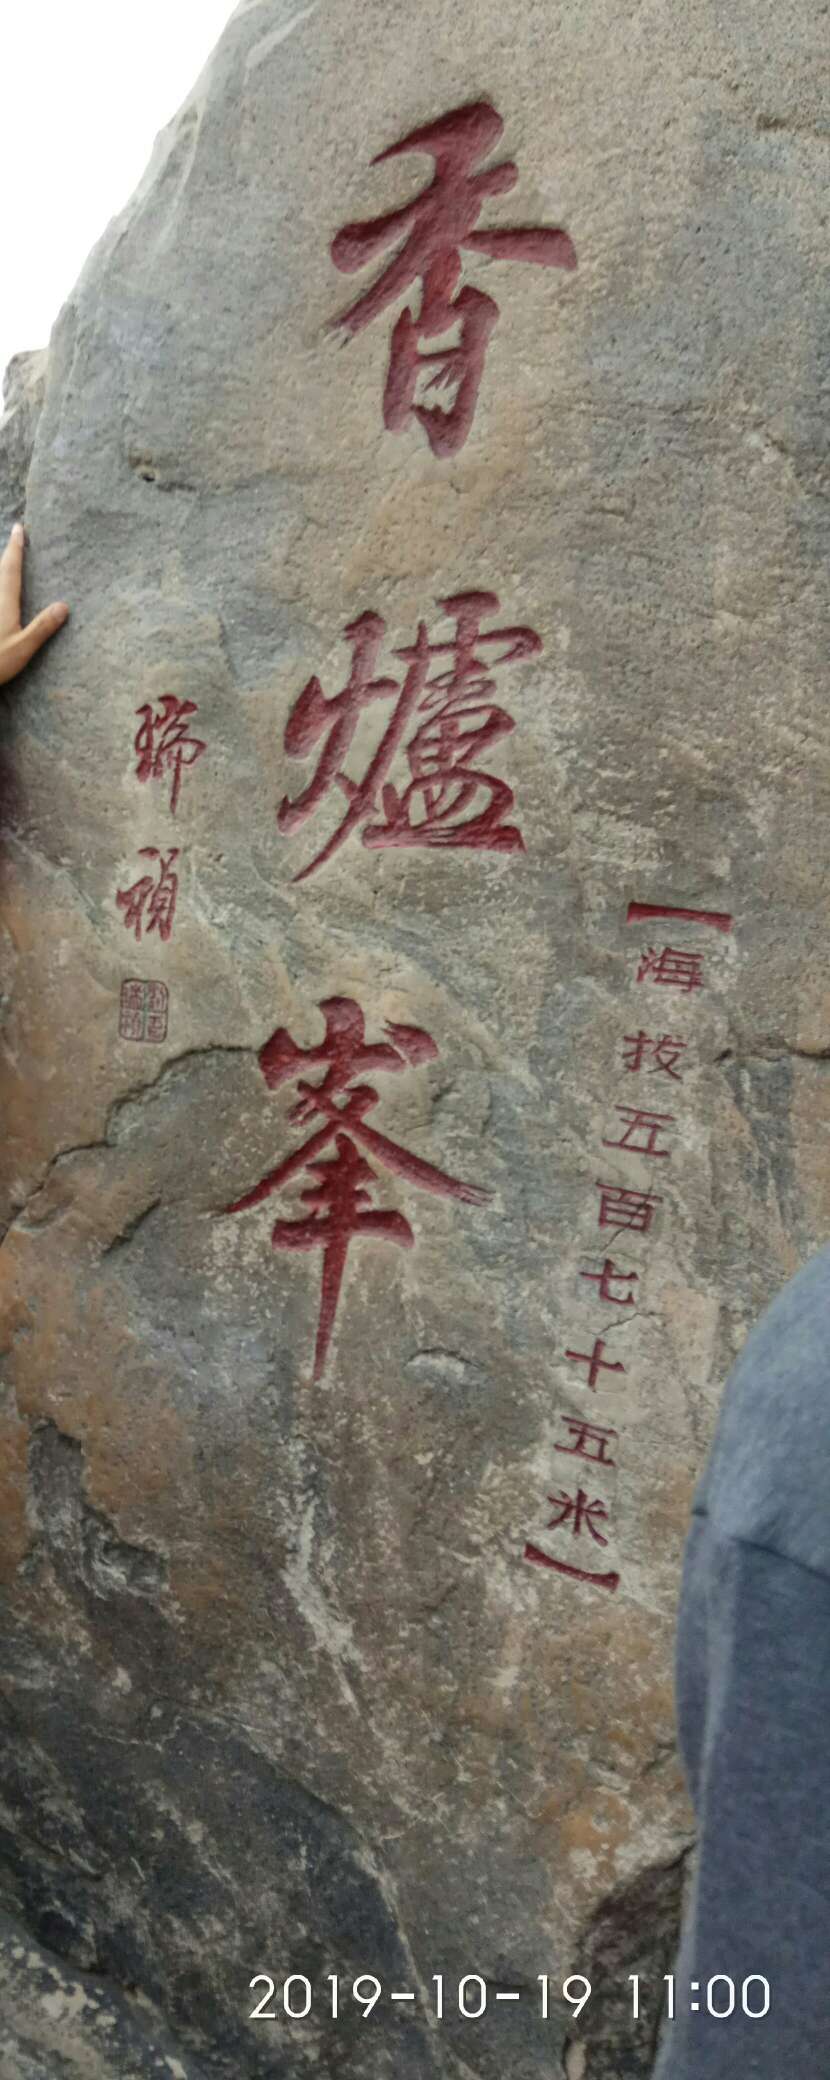 香爐峯
【海拔五百七十五米】
瑞禎
2019-10-19 11:00